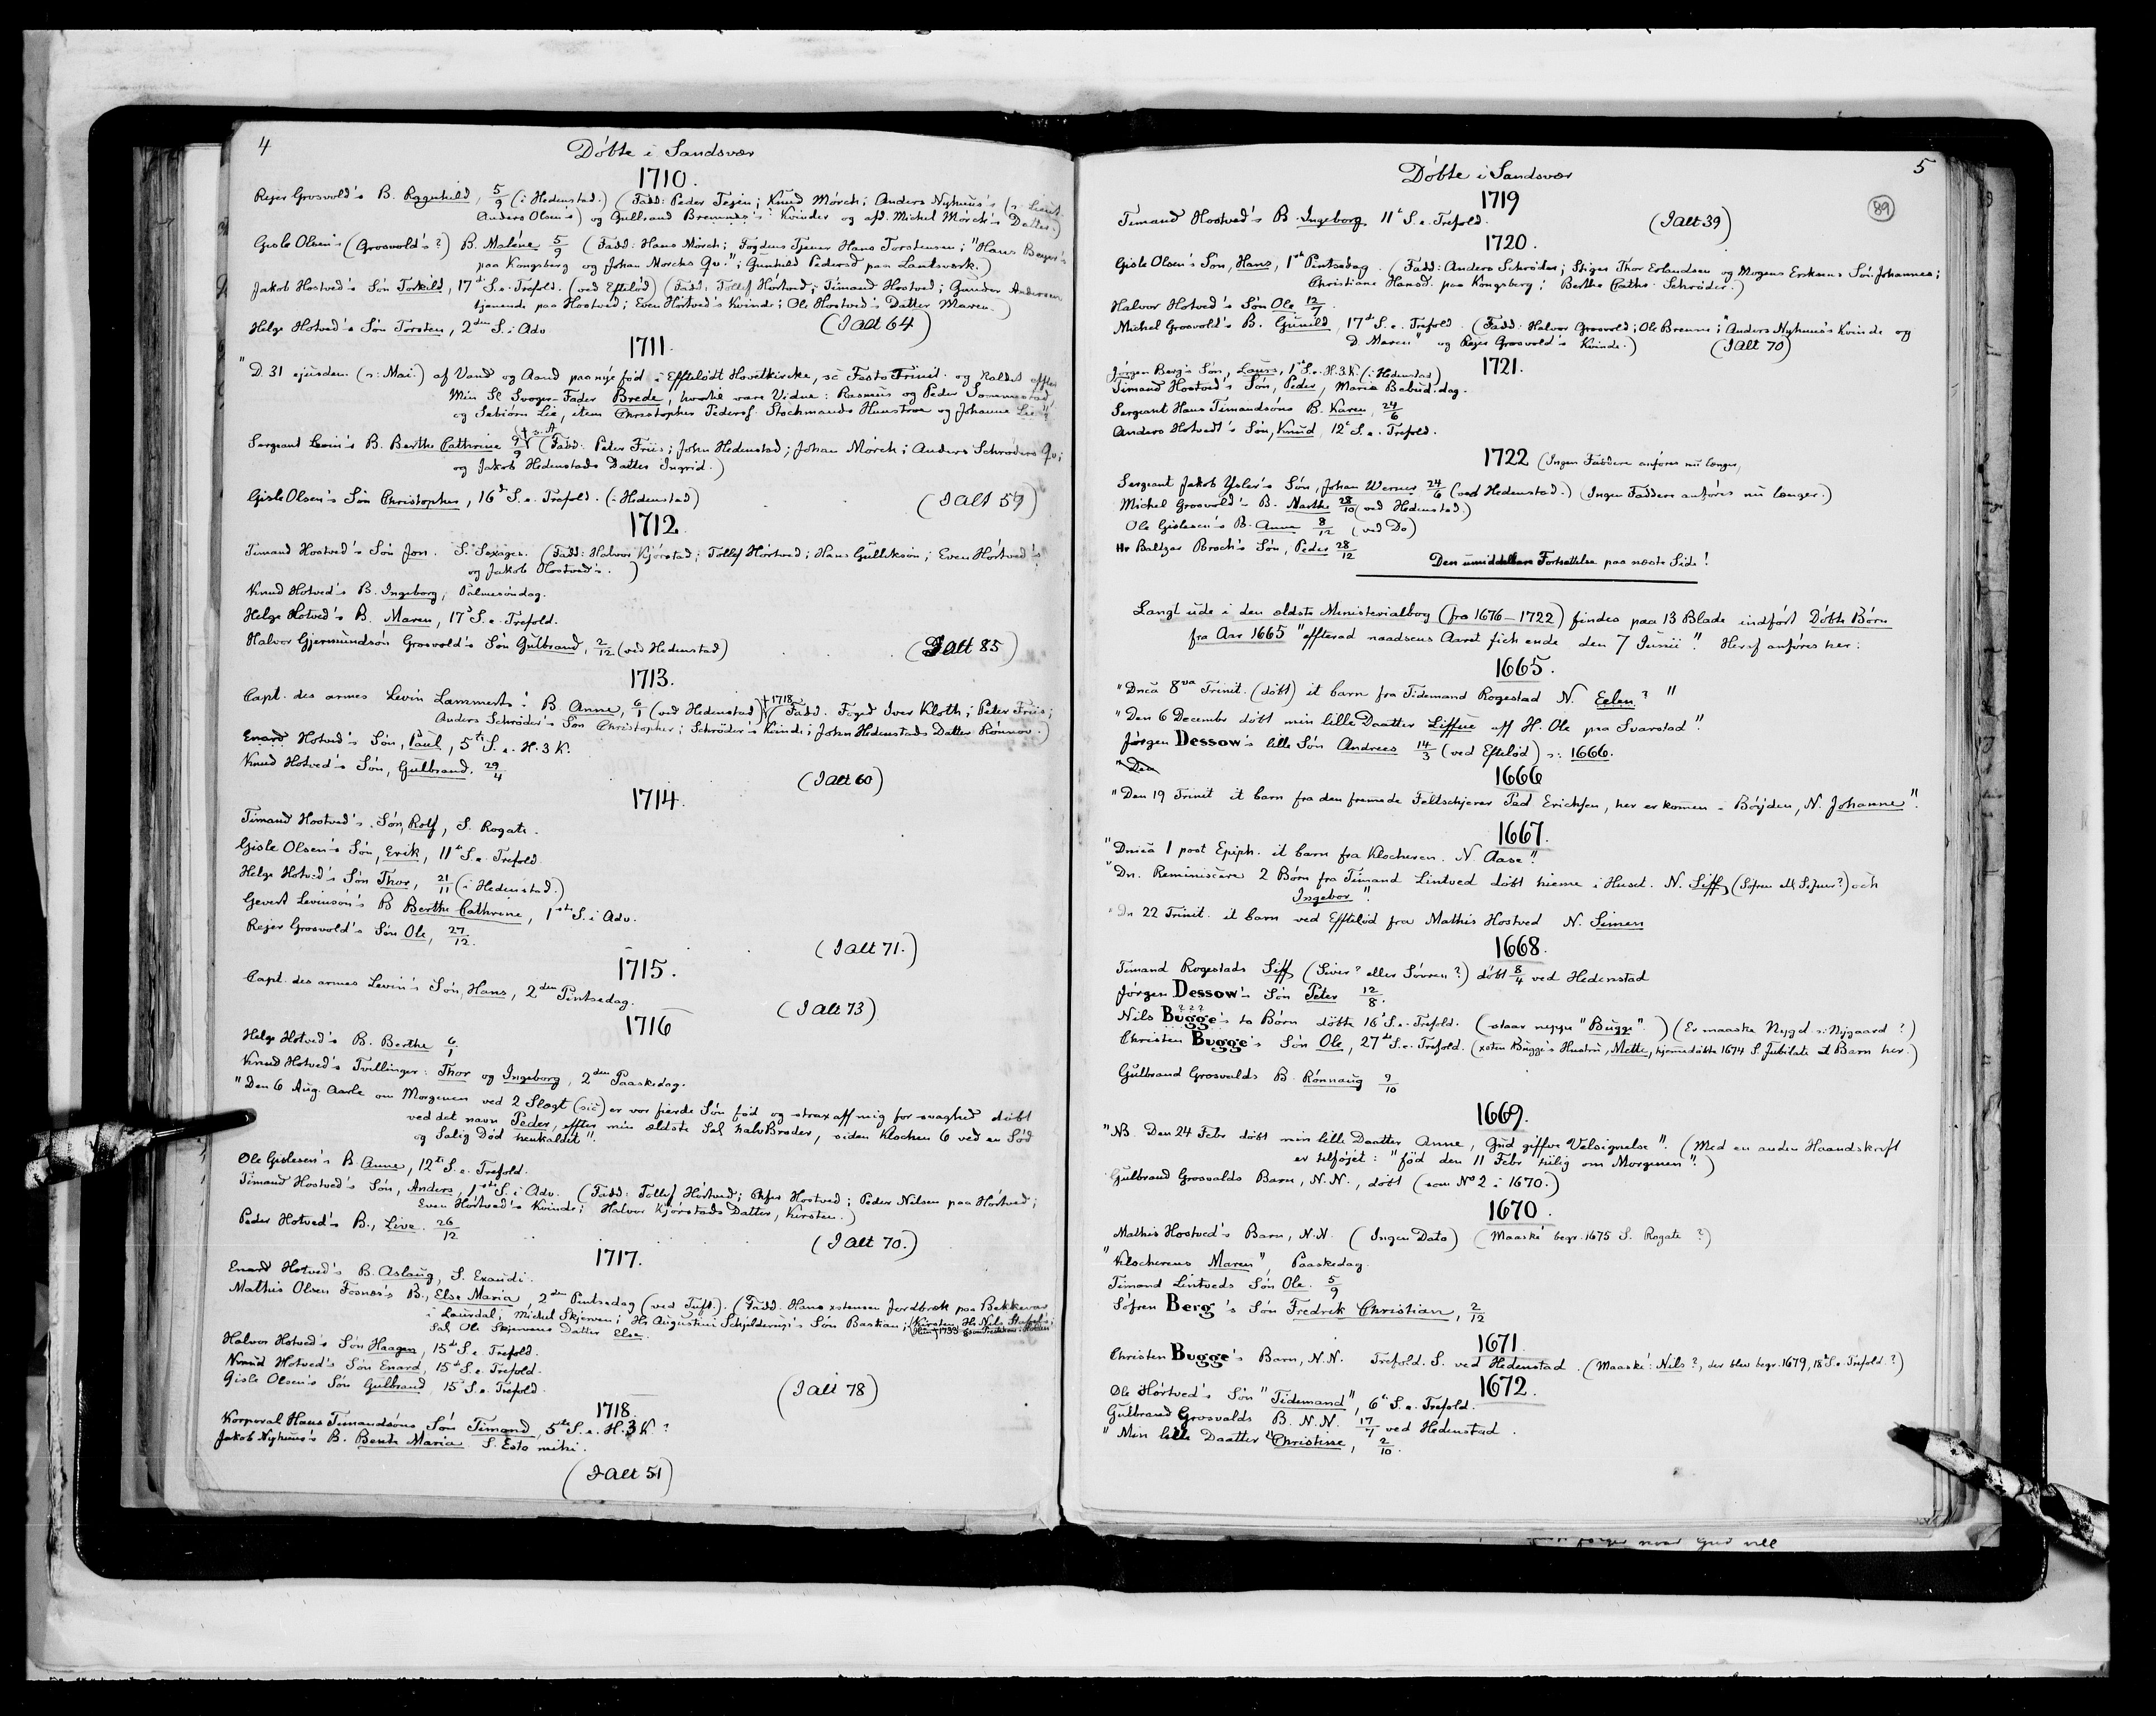 4
Döbte i Sandsvær
1710.
Rejer Grosvold's B. Ragnhild, 5/9 (i Hedenstad.) (Fadd: Peder Tejen; Knud Mörch; Anders Nyhuus's (ɔ: Lieut.
Anders Olsen's) og Gulbrand Bremnes's Kvinder og afd. Michel Mörch's Datter.)
Gisle Olsen's (Grosvold's?) B. Maléne 5/9 (Fadd: Hans Mörch; Fogdens Tjener Hans Torstensen; "Hans Beyer's
paa Kongsberg og Johan Morchs Qv."; Gunhild Pedersd paa Lantsværk.)
Jakob Hostved's Sön Torkild, 17de S. e. Trefold. (ved Eftelöd) (Fadd: Tollef Hörtved; Timand Hostved; Gunder Andersen
tjenende paa Hostved; Even Hörtved's Kvinde; Ole Hostved's Datter Maren.)
Helge Hotved's Sön Torsten, 2den S. i Adv. (I alt 64)
1711.
"D. 31 ejusdem (ɔ: Mai.) af Vand og Aand paa nye föd i Efftelödt Hovetkircke, sc Festo Trinit. og kaldet effter
Min Sl Svoger-Fader Brede, hvortil vare Vidne: Rasmus og Peder Sommestad,
og Sebiörn Lie, item Christopher Pedersf. Stochmands Huustroe og Johanne Lie".
Sergeant Levin's B. Berthe Cathrine 9/9 († s. A.) (Fadd: Peter Friis; John Hedenstad; Johan Mörch; Anders Schröders Qv;
og Jakob Hedenstads Datter Ingrid.)
Gisle Olsen's Sön Christopher, 16de S. e. Trefold. (i Hedenstad) (I alt 59)
1712.
Timand Hostved's Sön Jon. S. Sexages. (Fadd: Halvor Kjörstad; Tollef Hörtved; Hans Gulleksön; Even Hörtved's
og Jakob Hostved's.)
Knud Hotved's B. Ingeborg, Palmesöndag.
Helge Hotved's B. Maren, 17de S. e. Trefold.
Halvor Gjermundsön Grosvold's Sön Gulbrand, 2/12 (ved Hedenstad) (I alt 85)
1713.
Capt. des armes Levin Lammerts: B. Anne, 6/1 (ved Hedenstad) († 1718) (Fadd. Foged Iver Kloth; Peter Friis;
Anders Schröder's Sön Christopher; Schröder's Kvinde; John Hedenstads Datter Rönnov.)
Enard Hotved's Sön, Paul, 5te S. e. H. 3 K.
Knud Hotved's Sön, Gulbrand. 29/4 (I alt 60)
1714.
Timand Hostved's Sön, Rolf, S. Rogate.
Gisle Olsen's Sön, Erik, 11te S. e. Trefold.
Helge Hotved's Sön Thor, 21/11 (i Hedenstad.)
Gevert Levinsön's B Berthe Cathrine, 1ste S. i Adv.
Rejer Grosvold's Sön Ole, 27/12. (I alt 71.)
1715.
Capt. des armes Levin's Sön, Hans, 2den Pintsedag. (I alt 73)
1716
Helge Hotved's B. Berthe 6/1
Knud Hotved's Tvillinger: Thor og Ingeborg, 2den Paaskedag.
"Den 6 Aug. Aarle om Morgenen ved 2 Slagt (sic) er vor fierde Sön föd og strax aff mig for svaghed döbt
ved det navn Peder, effter min ældste Sal halvBroder, siden Klochen 6 ved en Söd
og Salig Död henkaldet".
Ole Gislesen's B Anne, 12te S. e. Trefold.
Timand Hostved's Sön, Anders, 1ste S. i Adv. (Fadd: Tollef Hörtved; Rejer Hostved; Peder Nilsen paa Hörtved;
Even Hörtved's Kvinde; Halvor Kjörstads Datter, Kirsten.)
Peder Hotved's B., Live. 26/12 (I alt 70.)
1717.
Enard Hotved's B. Aslaug, S. Exaudi.
Mathis Olsen Fosnæs's B., Else Maria, 2den Pintsedag (ved Tuft). (Fadd. Hans xstensen Jordbræk paa Bekkevar
i Laurdal; Michel Skjerven; Hr Augustini Schjelderup's Sön Bastian; (Kirsten, Hr Nils Stapfel's
Sal Ole Skjervens Datter Else.
Halvor Hotved's Sön Haagen, 15de S. e. Trefold.
Knud Hotved's Sön Enard, 15de S. e. Trefold.
Gisle Olsen's Sön Gulbrand, 15de S. e. Trefold. (I alt 78)
1718.
Korporal Hans Timandsöns Sön Timand, 5te S. e. H. 3 K.
Jakob Nyhuus's B. Bente Maria S. Esto mihi.
(I alt 51)
5
89
Döbte i Sandsvær
1719
Timand Hostved's B. Ingeborg 11te S. e. Trefold. (I alt 39)
1720.
Gisle Olsen's Sön, Hans, 1ste Pintsedag. (Fadd: Anders Schröder; Stiger Thor Erlandsen og Mogens Ersksens Sön Johannes;
Christiane Hansd. paa Kongsberg; Berthe Cathr. Schröder.)
Halvor Hotved's Sön Ole 12/7.
Michel Grosvold's B. Gunild, 17de S. e. Trefold. (Fadd: Halvor Grosvold; Ole Brenne; "Anders Nyhuus's Kvinde og
D. Maren" og Rejer Grosvold's Kvinde.) (I alt 70)
1721.
Jörgen Berg's Sön, Laurs, 1ste S. e. H. 3 K. (i Hedenstad)
Timand Hostved's Sön, Peder, Maria Bebud. dag.
Sergeant Hans Timandsöns B. Karen, 24/6
Anders Hotvedt's Sön, Knud, 12te S. e. Trefold.
1722 (Ingen Faddere anföres nu længer,
Sergeant Jakob Ysler's Sön, Johan Werner 24/6 (ved Hedenstad.) (Ingen Faddere anföres nu længer.)
Michel Grosvold's B. Marthe 28/10 (ved Hedenstad.)
Ole Gislesen's B. Anne 8/12 (ved Do)
Hr Baltzar Broch's Sön, Peder 28/12
Den umiddelbare Fortsættelse paa næste Side!
Langt ude i den ældste Ministerialbog (fra 1676–1722) findes paa 13 Blade indfört Döbte Börn
fra Aar 1665 "effterad naadsens Aaret fich ende den 7 Junii". Heraf anföres her:
1665.
"Dnica 8va Trinit. (döbt) it barn fra Tidemand Rogestad N. Eelen? "
"Den 6 Decembr döbt min lille Daatter Liffue aff H. Ole paa Svarstad".
Jörgen Dessow's lille Sön Andrees 14/3 (ved Eftelöd) ɔ: 1666.
"Den
1666
"Den 19 Trinit it barn fra den fremede Feltschjerer Ped. Erichsen, her er komen i Böyden, N. Johanne".
1667.
"Dnica 1 post Epiph. it barn fra Klocheren. N. Aase".
"Dn. Reminiscere 2 Börn fra Timand Lintved döbt hieme i Huset. N. Siff (Söfren ell. Sifuer?) och
Ingebor".
"Dn 22 Trinit. it barn ved Efftelöd fra Mathis Hostved N. Simen
1668.
Timand Rogestads Siff (Siver? eller Sövren?) döbt 8/4 ved Hedenstad
Jörgen Dessow's Sön Peter 12/8.
Nils Bugge's to Börn döbte 16de S. e. Trefold. (staar neppe "Bugge".) (Er maaske Nygd ɔ: Nygaard?)
Christen Bugge's Sön Ole, 27de S. e. Trefold. (xsten Bugge's Hustru, Mette, hjemmedöbte 1674 S. Jubilate et Barn her.)
Gulbrand Grosvalds B. Rönnaug 9/10
1669.
"NB. Den 24 Febr döbt min lille Daatter Anne, Gud giffue Velsignelse". (Med en anden Haandskrift
er tilföjet: "föd den 11 Febr tiilig om Morgenen".)
Gulbrand Grosvalds Barn, N.N., döbt (som No 2 i 1670.)
1670.
Mathis Hostved's Barn, N.N. (Ingen Dato) (Maaské begr. 1675 S. Rogate?)
"Klocherens Maren", Paaskedag.
Timand Lintveds Sön Ole. 5/9
Söfren Berg's Sön Fredrik Christian, 2/12
1671.
Christen Bugge's Barn, N.N. Trefold. S. ved Hedenstad. (Maaské: Nils?, der blev begr. 1679, 18de S. e. Trefold.?)
1672.
Ole Hörtved's Sön "Tidemand", 6te S. e. Trefold.
Gulbrand Grosvalds B. N.N. 17/7 ved Hedenstad.
"Min lille Daatter" Christine, 2/10.